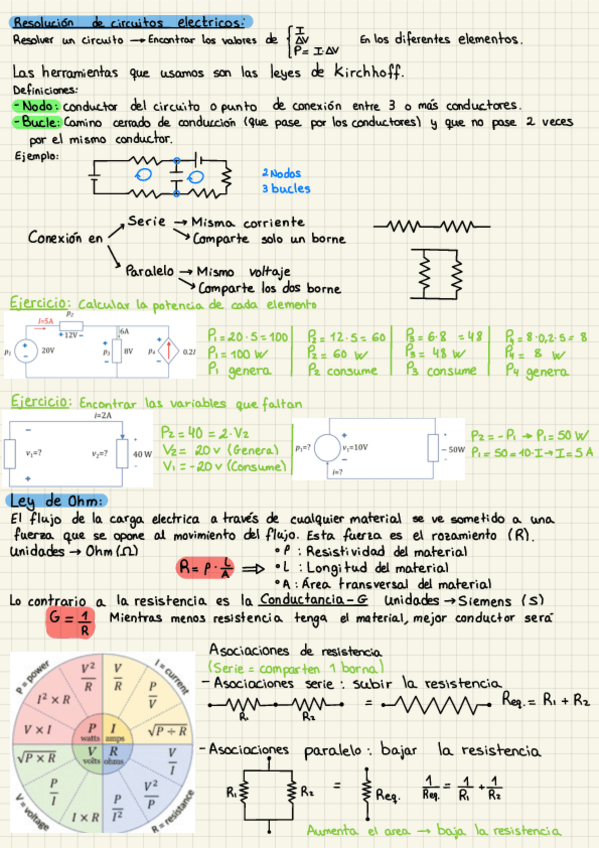 Resolución de circuitos electricos:
Resolver un circuito → Encontrar los valores de { I
ΔV
P = I·ΔV
En los diferentes elementos.
Las herramientas que usamos son las leyes de Kirchhoff.
Definiciones:
-Nodo: conductor del circuito o punto de conexión entre 3 o más conductores.
-Bucle: Camino cerrado de conducción (que pase por los conductores) y que no pase 2 veces
por el mismo conductor.
Ejemplo:
2 Nodos
3 bucles
Conexión en
Serie → Misma corriente
→ Comparte solo un borne
Paralelo → Mismo voltaje
→ Comparte los dos borne
Ejercicio: Calcular la potencia de cada elemento
I=5A
p2
+ 12V -
6A
p1
20V
p3
8V
p4
0.2I
P1 = 20·5 = 100
P1 = 100 W
P1 genera
P2 = 12·5 = 60
P2 = 60 W
P2 consume
P3 = 6·8 = 48
P3 = 48 W
P3 consume
P4 = 8·0,2·5 = 8
P4 = 8 W
P4 genera
Ejercicio: Encontrar las variables que faltan
i=2A
v1=?
v2=?
40 W
P2 = 40 = 2·V2
V2 = 20 v (Genera)
V1 = -20 v (Consume)
p1=?
v1=10V
i=?
- 50W
P2 = -P1 → P1 = 50 W
P1 = 50 = 10·I → I = 5 A
Ley de Ohm:
El flujo de la carga electrica a través de cualquier material se ve sometido a una
fuerza que se opone al movimiento del flujo. Esta fuerza es el rozamiento (R).
Unidades → Ohm (Ω)
R = ρ · L/A ⟹
• ρ : Resistividad del material
• L : Longitud del material
• A : Área transversal del material
Lo contrario a la resistencia es la Conductancia - G Unidades → Siemens (S)
G = 1/R
Mientras menos resistencia tenga el material, mejor conductor será
P = power
I = current
V = voltage
R = resistance
V²/R
V/R
I² × R
P/V
V × I
√P ÷ R
P
watts
I
amps
V
volts
R
ohms
√P × R
V/I
P/I
V²/P
I × R
P/I²
Asociaciones de resistencia
(Serie = comparten 1 borna)
- Asociaciones serie : subir la resistencia
R1
R2
=
Req. = R1 + R2
- Asociaciones paralelo : bajar la resistencia
R1
R2
=
Req.
1/Req. = 1/R1 + 1/R2
Aumenta el area → baja la resistencia